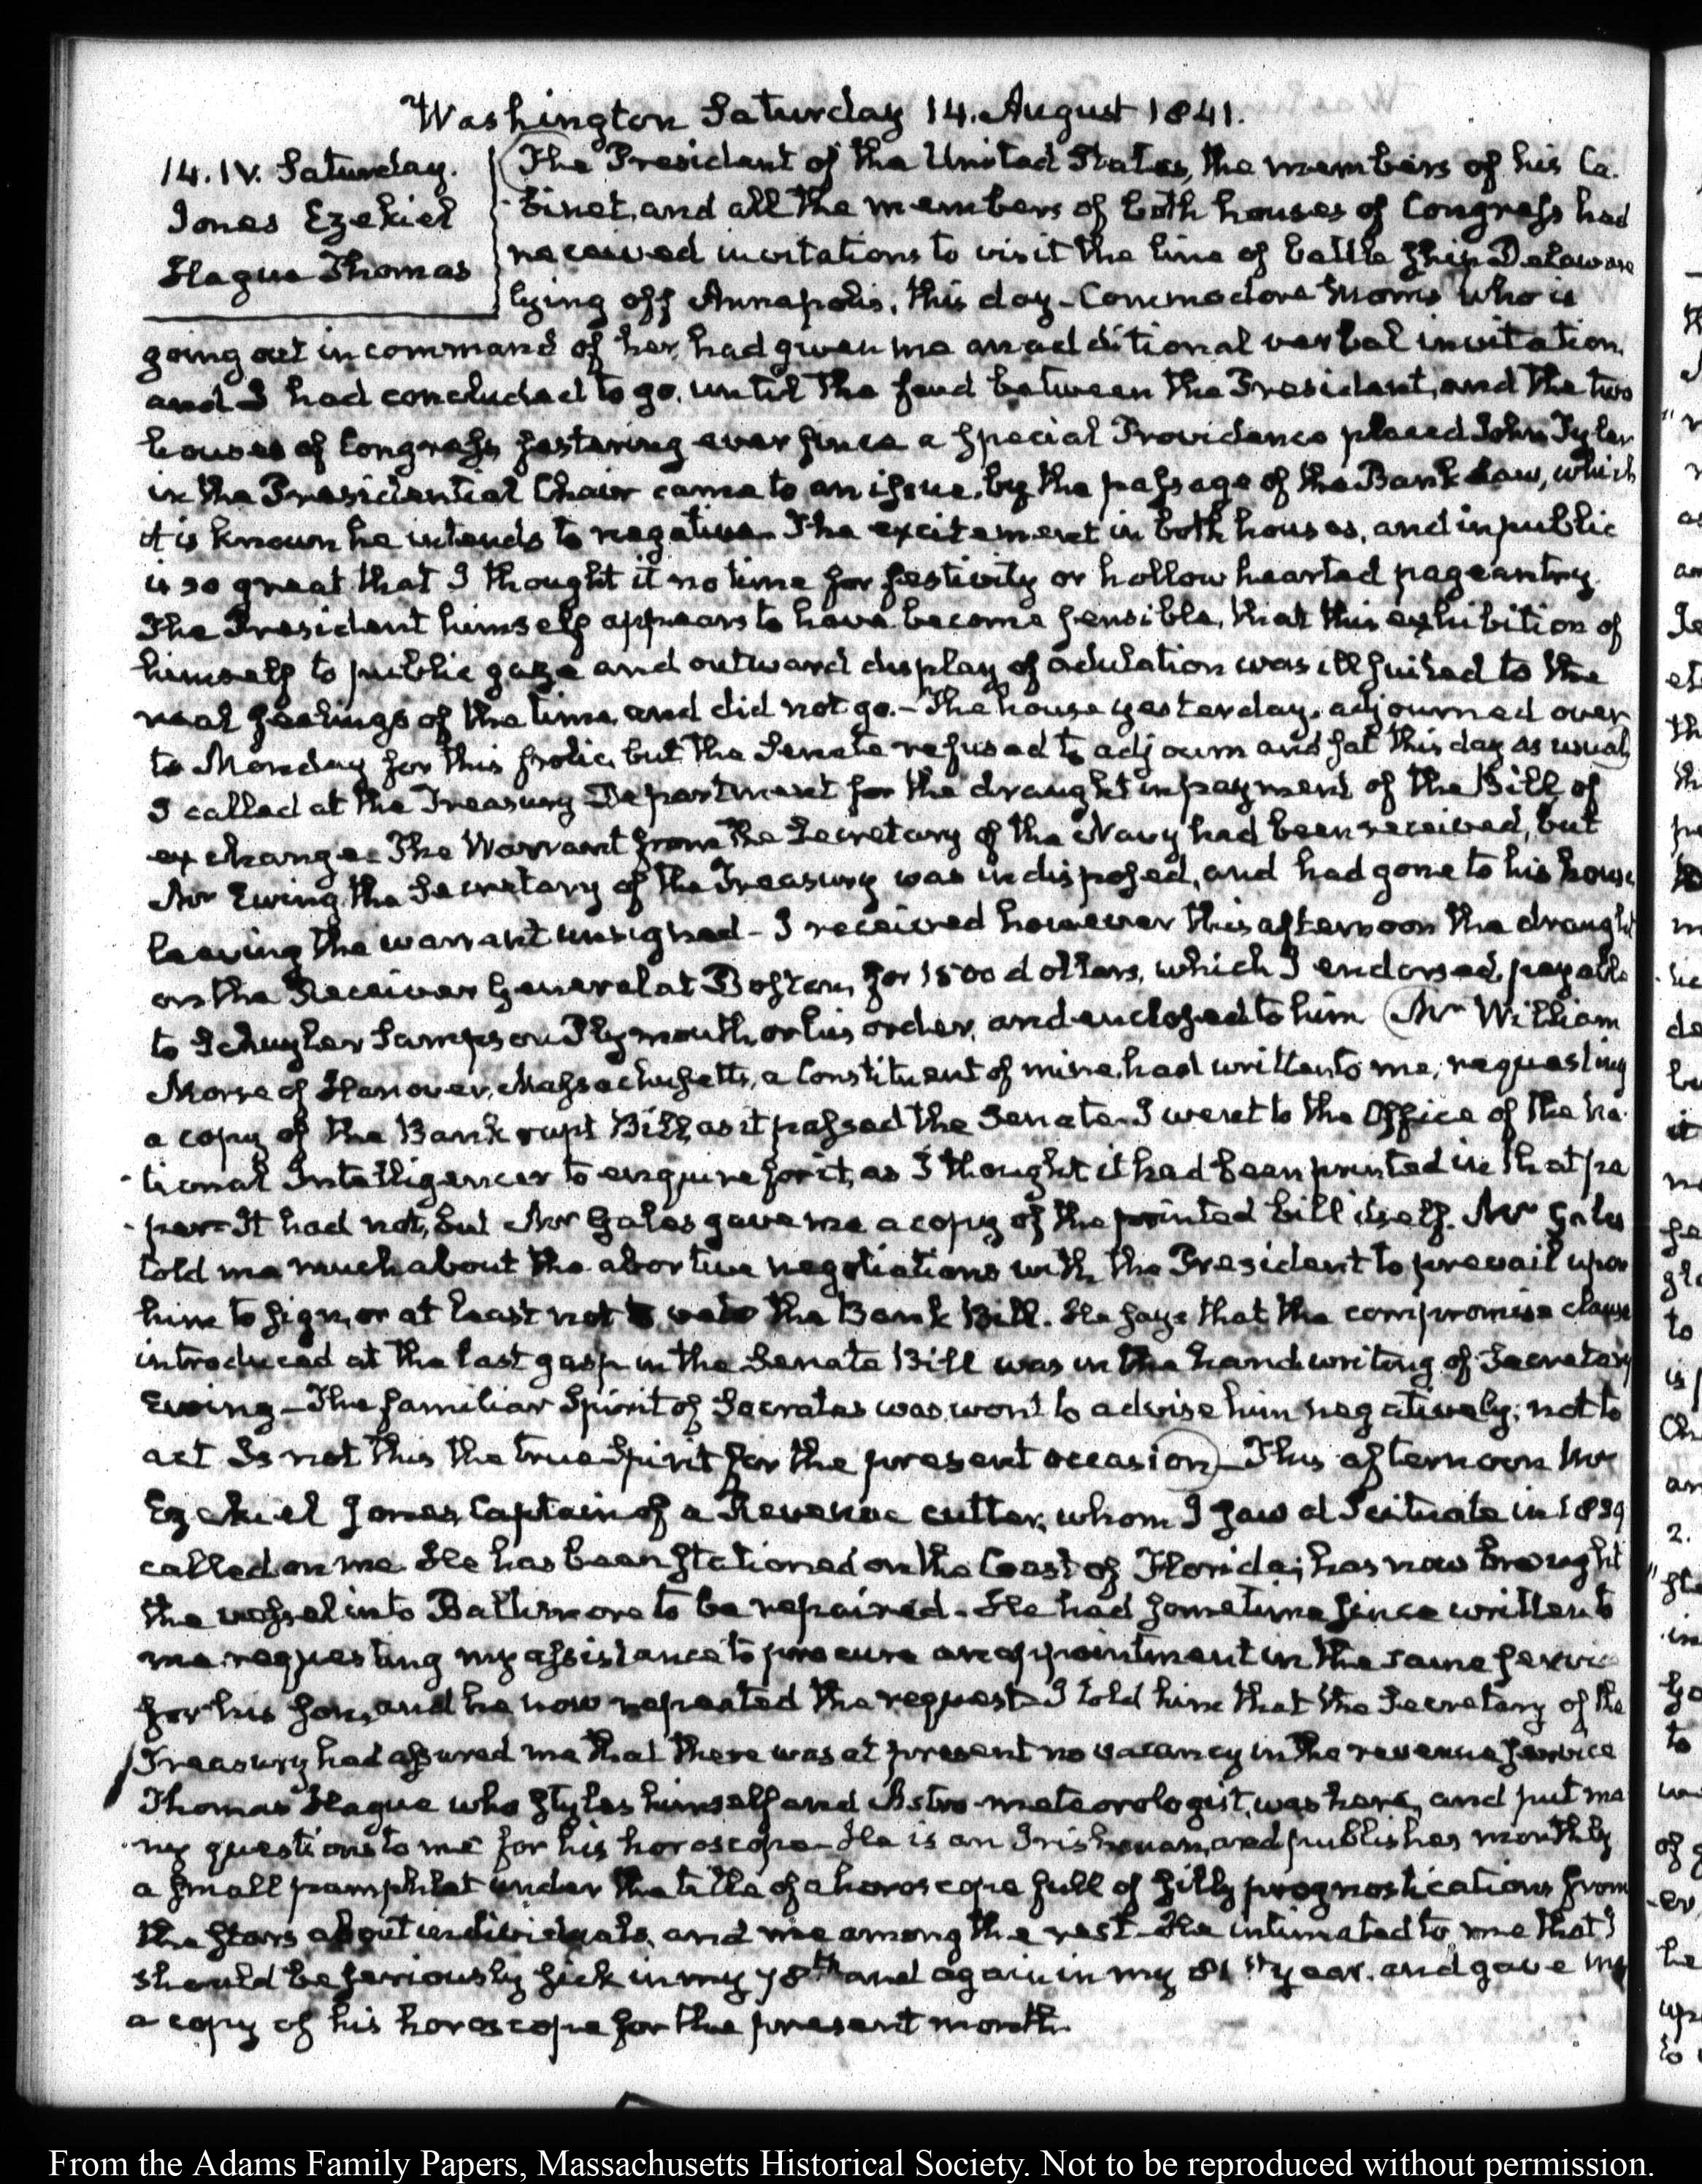 Washington Saturday 14. August 1841.
14. IV. Saturday.
Jones Ezekiel
Hague Thomas
The President of the United States, the members of his Ca-
-binet, and all the members of both houses of Congress had
received invitations to visit the line of battle ship Delaware
lying off Annapolis, this day – Commodore Morris who is
going out in command of her, had given me an additional verbal invitation,
and I had concluded to go, until the feud between the President, and the two
houses of Congress festering ever since a special Providence placed John Tyler
in the Presidential Chair came to an issue, by the passage of the Bank Law, which
it is known he intends to negative. The excitement in both houses, and in public
is so great that I thought it no time for festivity or hollow hearted pageantry.
The President himself appears to have become sensible, that this exhibition of
himself to public gaze and outward display of adulation was ill suited to the
real feelings of the time, and did not go. – The house yesterday, adjourned over
to Monday for this frolic, but the Senate refused to adjourn and sat this day as usual)
I called at the Treasury Department for the draught in payment of the Bill of
exchange. The Warrant from the Secretary of the Navy had been received, but
Mr Ewing the Secretary of the Treasury was indisposed, and had gone to his house
leaving the warrant unsigned – I received however this afternoon the draught
on the Receiver General at Boston, for 1500 dollars, which I endorsed, payable
to Schuyler Sampson Plymouth, or his order, and enclosed to him (Mr William
Morse of Hanover, Massachusetts, a Constituent of mine, had written to me, requesting
a copy of the Bankrupt Bill, as it passed the Senate. I went to the Office of the Na-
-tional Intelligencer to enquire for it, as I thought it had been printed in that pa
-per – It had not, but Mr Gales gave me a copy of the printed bill itself. Mr Gales
told me much about the abortive negotiations with the President to prevail upon
him to sign, or at least not to veto the Bank Bill. He says that the compromise clause
introduced at the last gasp in the Senate Bill was in the handwriting of Secretary
Ewing – The familiar Spirit of Socrates was wont to advise him negatively; not to
act Is not this the true Spirit for the present occasion) – This afternoon Mr
Ezekiel Jones, Captain of a Revenue cutter, whom I saw at Scituate in 1839
called on me. He has been stationed on the Coast of Florida; has now brought
the vessel into Baltimore to be repaired – He had sometime since written to
me requesting my assistance to procure an appointment in the same service
for his son, and he now repeated the request – I told him that the Secretary of the
Treasury had assured me that there was at present no vacancy in the revenue service
Thomas Hague who styles himself and Astro-meteorologist, was here, and put ma
-ny questions to me for his horoscope – He is an Irishman, and publishes monthly
a small pamphlet under the title of a horoscope full of silly prognostications from
the stars about individuals, and me among the rest – He intimated to me that I
should be seriously sick in my 78th and again in my 81st year. and gave me
a copy of his horoscope for the present month.
From the Adams Family Papers, Massachusetts Historical Society. Not to be reproduced without permission.